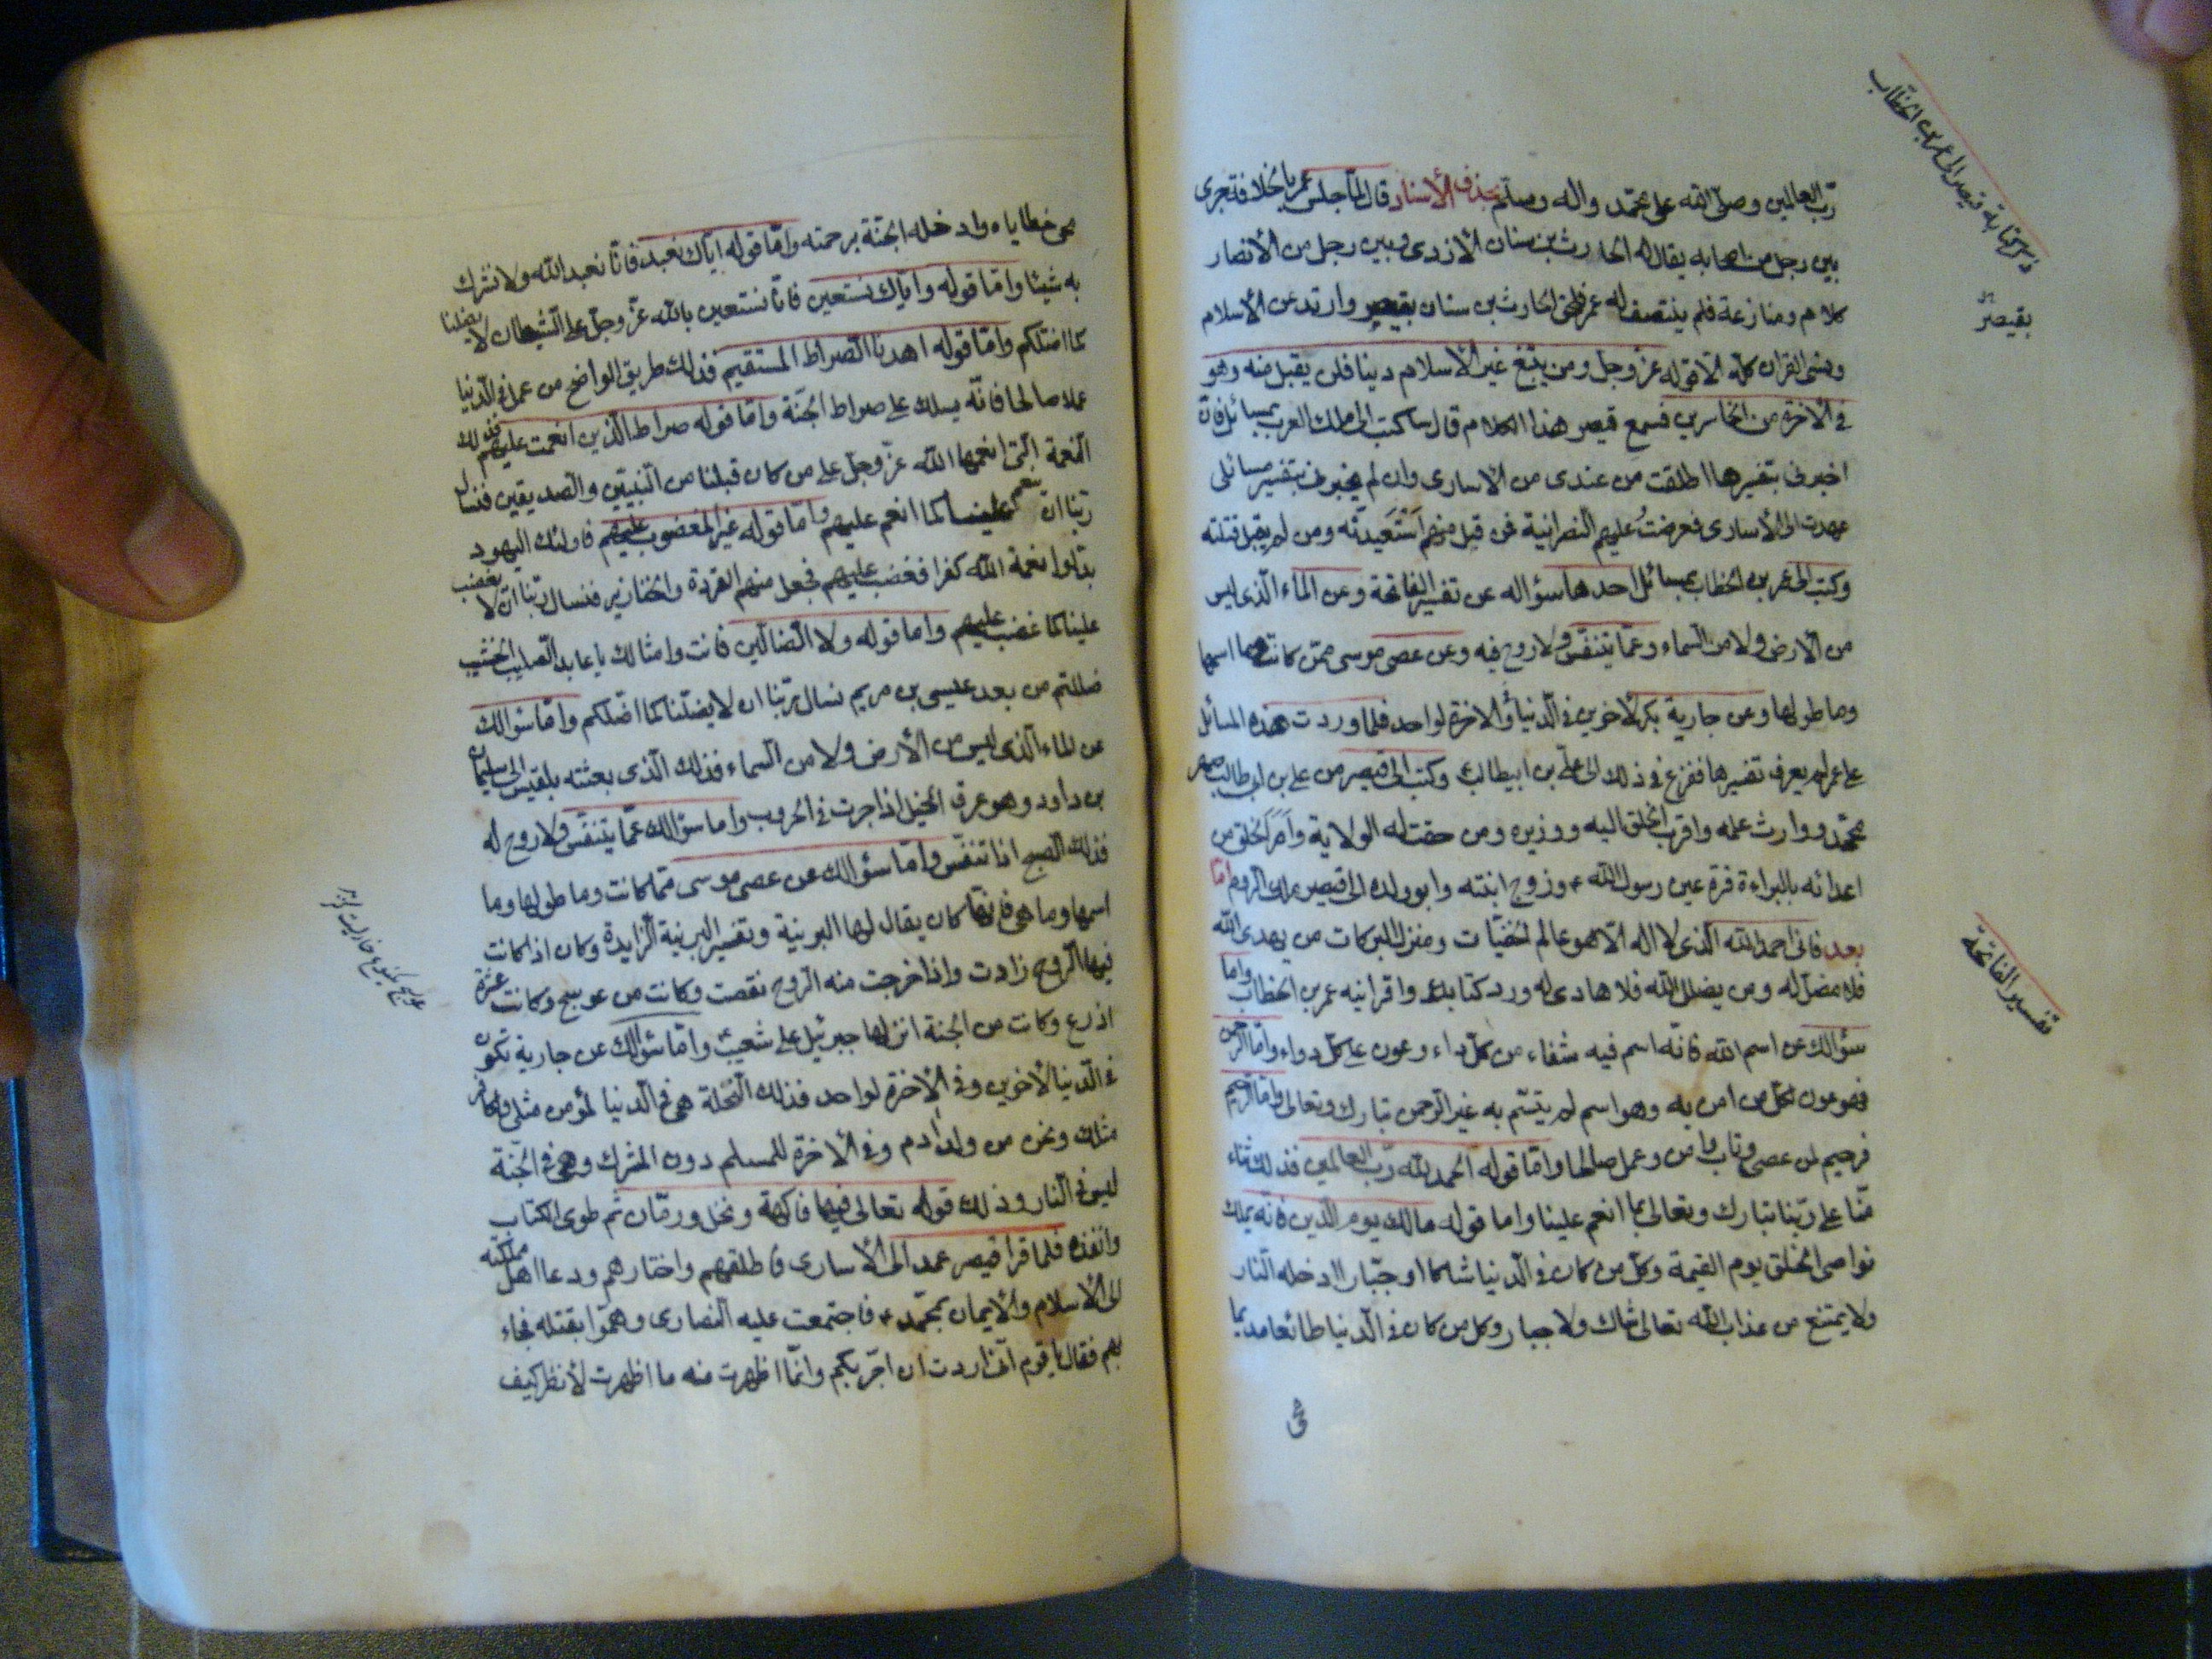 ذكر كتابة قيصر الى عمر بن الخطاب
رب العالمين وصلى الله على محمد واله وسلم بحذف الأسناد قال لما جلس عمر بالخلافة جرى
بين رجل من اصحابه يقال له الحارث بن سنان الأزدى وبين رجل من الأنصار
كلام ومنازعة فلم ينتصف له عمر فلحق الحارث بن سنان بقيصر وارتد عن الأسلام
بقيصر
ونسى القران كله الا قوله عز وجل ومن يبتغ غير الأسلام دينا فلن يقبل منه وهو
فى الأخرة من الخاسرين فسمع قيصر هذا الكلام قال ساكتب الى ملك العرب بمسائل فان
اخبرنى بتفسيرها اطلقت من عندى من الأسارى وان لم يخبرنى بتفسير مسائلى
عمدت الى الأسارى فعرضت عليهم النصرانية فمن قبل منهم استعبدته ومن لم يقبل قتلته
وكتب الى عمر بن الخطاب بمسائل احدها سؤاله عن تفسير الفاتحة وعن الماء الذى ليس
من الأرض ولا من السماء وعما يتنفس ولا روح فيه وعن عصى موسى مم كانت وما اسمها
وما طولها وعن جارية بكر لأخوين فى الدنيا وفى الاخرة لواحد فلما وردت هذه المسائل
على عمر لم يعرف تفسيرها ففزع فى ذلك الى على بن ابيطالب وكتب الى قيصر من على بن ابى طالب صهر
محمد ووارث علمه واقرب الخلق اليه ووزيره ومن حقت له الولاية وامر الخلق من
اعدائه بالبراءة قرة عين رسول الله وزوج ابنته وابو ولده الى قيصر ملك الروم اما
بعد فانى احمد الله الذى لا اله الا هو عالم الخفيات ومنزل البركات من يهدى الله
تفسير الفاتحة
فلا مضل له ومن يضلل الله فلا هادى له ورد كتابك واقرانيه عمر بن الخطاب واما
سؤالك عن اسم الله فانه اسم فيه شفاء من كل داء وعون على كل دواء واما الرحمن
فهو عون لكل من امن به وهو اسم لم يتسم به غير الرحمن تبارك وتعالى واما الرحيم
فرحيم لمن عصى وتاب وامن وعمل صالحا واما قوله الحمد لله رب العالمين فذلك ثناء
منا على ربنا تبارك وتعالى بما انعم علينا واما قوله مالك يوم الدين فانه يملك
نواصى الخلق يوم القيمة وكل من كان فى الدنيا شاكا او جبارا ادخله النار
ولا يمتنع من عذاب الله تعالى شاك ولا جبار وكل من كان فى الدنيا طائعا مديما
محى خطاياه وادخله الجنة برحمته واما قوله اياك نعبد فانا نعبد الله ولا نشرك
به شيئا واما قوله واياك نستعين فانا نستعين بالله عز وجل على الشيطان لا يضلنا
كما اضلكم واما قوله اهدنا الصراط المستقيم فذلك طريق الواضح من عمل فى الدنيا
عملا صالحا فانه يسلك على صراط الجنة واما قوله صراط الذين انعمت عليهم فذلك
النعمة التى انعمها الله عز وجل على من كان قبلنا من النبيين والصديقين فنسال
ربنا ان ينعم علينا كما انعم عليهم واما قوله غير المغضوب عليهم فاولئك اليهود
بدلوا نعمة الله كفرا فغضب عليهم فجعل منهم القردة والخنازير فنسال ربنا ان لا يغضب
علينا كما غضب عليهم واما قوله ولا الضالين فانت وامثالك يا عابد الصليب الخشب
ضللتم من بعد عيسى بن مريم نسال ربنا ان لا يضلنا كما اضلكم واما سؤالك
عن الماء الذى ليس من الأرض ولا من السماء فذلك الذى بعثته بلقيس الى سليمان
بن داود وهو عرق الخيل اذا جرت فى الحروب واما سؤالك عما يتنفس ولا روح له
فذلك الصبح اذا تنفس واما سؤالك عن عصى موسى مما كانت وما طولها وما
اسمها وما هى فانها كان يقال لها البرنية وتفسير البرنية الزايدة وكان اذا كانت
فيها الروح زادت واذا خرجت منه الروح نقصت وكانت من عوسج وكانت عشرة
اذرع وكانت من الجنة انزلها جبرئيل على شعيب واما سؤالك عن جارية تكون
فى الدنيا لأخوين وفى الأخرة لواحد فذلك النخلة هى فى الدنيا لمؤمن مثلى ولكافر
مثلك ونحن من ولد ادم وفى الأخرة للمسلم دون المشرك وهى فى الجنة
ليس فى النار وذلك قوله تعالى فيهما فاكهة ونخل ورمان ثم طوى الكتاب
وانفذه فلما قرا قيصر عمد الى الأسارى فاطلقهم واختارهم ودعا اهل مملكته
الى الأسلام والأيمان بمحمد فاجتمعت عليه النصارى وهموا بقتله فجاء
بهم فقال يا قوم انى اردت ان اجربكم وانما اظهرت منه ما اظهرت لأنظر كيف